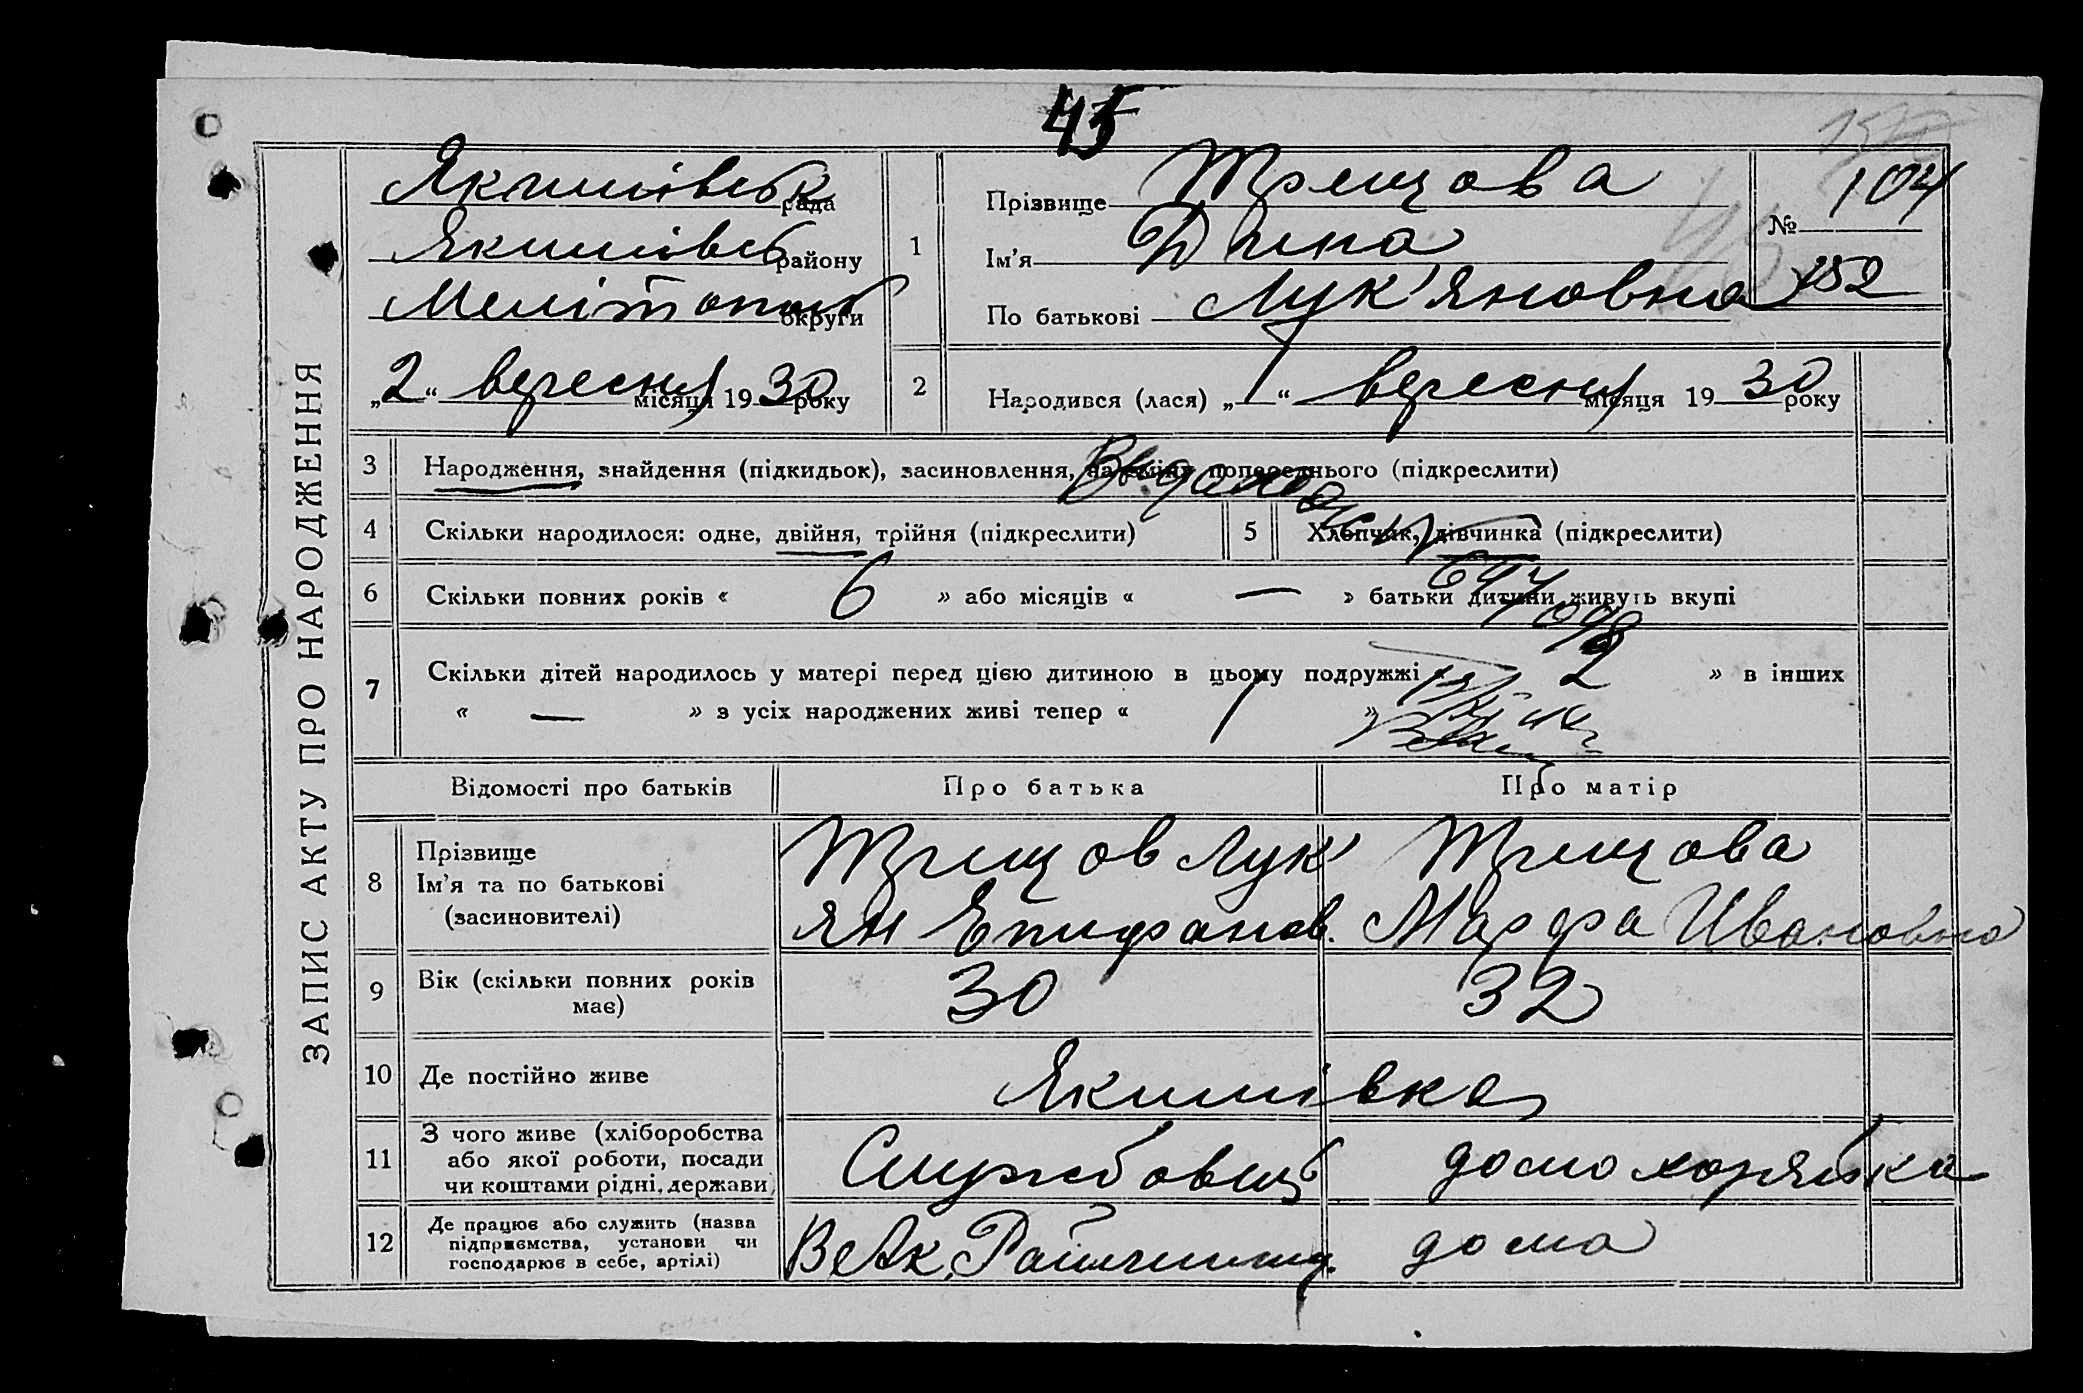 45
ЗАПИС АКТУ ПРО НАРОДЖЕННЯ
Якимівськ рада
Якимівсь району
округи
„2“ вересня місяця 1930 року
1
Прізвище Трещова
Ім’я Дина
По батькові Лук’яновна
№ 104
152
2
Народився (лася) „1“ вересня місяця 1930 року
3 Народження, знайдення (підкидьок), засиновлення, попереднього (підкреслити)
4 Скільки народилося: одне, двійня, трійня (підкреслити)
5 Хлопчик, дівчинка (підкреслити)
6 Скільки повних років « 6 » або місяців « — » батьки дитини живуть вкупі
7 Скільки дітей народилось у матері перед цією дитиною в цьому подружжі « 2 » в інших
« — » з усіх народжених живі тепер « 1 »
Відомості про батьків
Про батька
Про матір
8 Прізвище
Ім’я та по батькові
(засиновителі)
Трещов Лук’
ян Епифанов.
Трещова
Марфа Ивановна
9 Вік (скільки повних років
має)
30
32
10 Де постійно живе
Якимівка
11 З чого живе (хліборобства
або якої роботи, посади
чи коштами рідні, держави)
Службовець
домохозяйка
12 Де працює або служить (назва
підприємства, установи чи
господарює в себе, артілі)
дома